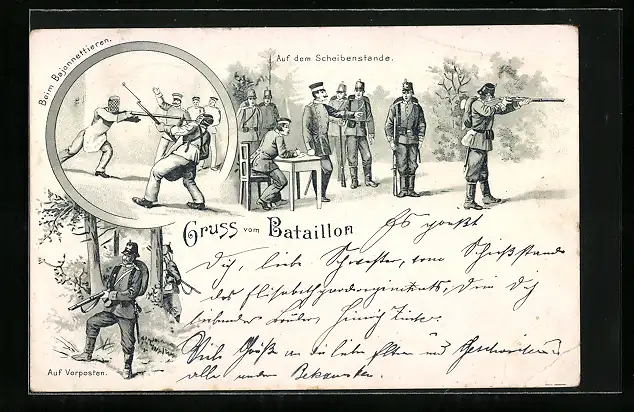 Beim Bajonnettieren.
Auf dem Scheibenstande.
Gruss vom Bataillon
Es grüßt
Dich, liebe Schwester, vom Schießstande
des Elisabethgarderegiments, Dein Dich
liebender Bruder,
Viele Grüße an die lieben Eltern und Geschwister
alle andern Bekannten.
Auf Vorposten.